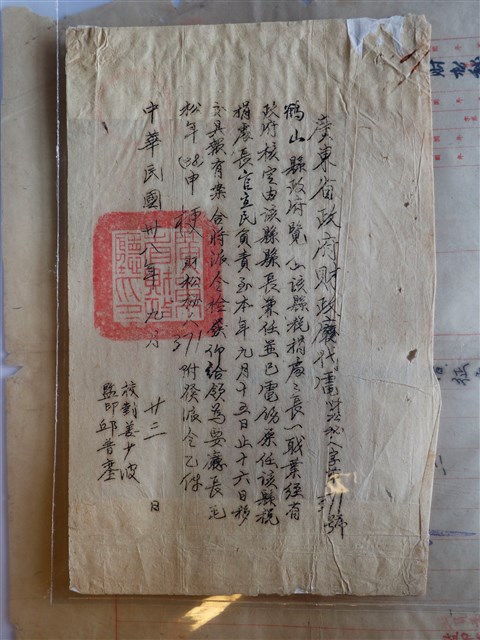 廣東省政府財政廳代電財松秘人字第371號
鶴山縣政府覽 該縣稅捐處處長一職業經省
政府核定由該縣縣長兼任並已電飭原任該縣稅
捐處長官立民負責至本年元月十五日止十六日移
交具報有案合將派令檢發仰給領為要廳長
松年 申梗財松秘人371附發派令乙件
中華民國卅八年元月 廿二 日
校對姜少波
監印邱普